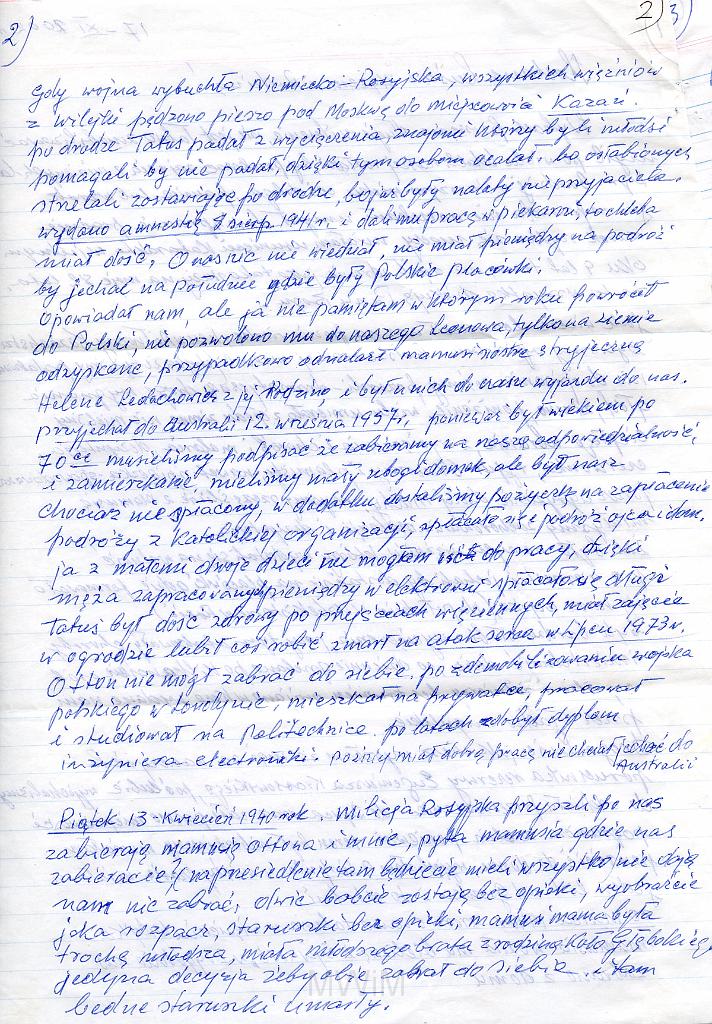 2)
2) 3)
Gdy wojna wybuchła Niemiecko-Rosyjska, wszystkich więźniów
z wilejki pędzono pieszo pod Moskwę do miejscowości Kazań.
po drodze Tatuś padał z wycięczenia, znajomi którzy byli młodsi
pomagali by nie padał, dzięki tym osobom ocalał. bo osłabionych
strzelali zostawiając po drodze, bo jak by były należy nieprzyjaciela.
wydano amnestię sierp. 1941r. i dali mu pracę w piekarni, to chleba
miał dość, O nas nic nie wiedział, nie miał pieniędzy na podróż
by jechał na południe gdzie były Polskie placówki.
Opowiadał nam, ale ja nie pamiętam w którym roku powrócił
do Polski, nie pozwolono mu do naszego Leonowa, tylko na ziemie
odzyskane, przypadkowo odnalazł mamusi siostrę stryjeczną
Helenę z jej Rodziną, i był u nich do czasu wyjazdu do nas.
przyjechał do Australii 12. września 1957r. ponieważ był wiekiem po
70ce musieliśmy podpisać że zabieramy na naszą odpowiedzialność,
i zamieszkanie mieliśmy mały ubogi domek, ale był nasz
chociaż nie spłacony, w dodatku dostaliśmy pożyczkę na zapłacenie
podróży z Katolickiej organizacji, spłacało się i podróż ojca i dom.
ja z małemi dwoje dzieci nie mogłam iść do pracy, dzięki
męża zapracowanych pieniędzy w elektrowni spłacało się długi
Tatuś był dość zdrowy po przejściach więziennych, miał zajęcie
w ogrodzie lubił coś robić zmarł na atak serca w Lipcu 1973r.
Otton nie mógł zabrać do siebie. po zdemobilizowaniu wojska
polskiego w Londynie, mieszkał na prywatce, pracował
i studiował na Politechnice. po latach zdobył dyplom
inżyniera electroniki. Poźniej miał dobrą pracę nie chciał jechać do
Australii
Piątek 13-Kwiecień 1940 rok. Milicja Rosyjska przyszli po nas
zabierają mamusię Ottona i mnie, pyta mamusia gdzie nas
zabieracie? (na przesiedlenie tam będziecie mieli wszystko) nie dają
nam nic zabrać, dwie babcie zostają bez opieki, wyobraźcie
jaka rozpacz, staruszki bez opieki, mamusi mama była
trochę młodsza, miała młodszego brata z rodziną koło Głębokiego,
jedyna decyzja żeby obie zabrał do siebie. i tam
biedne staruszki umarły.
MWiM